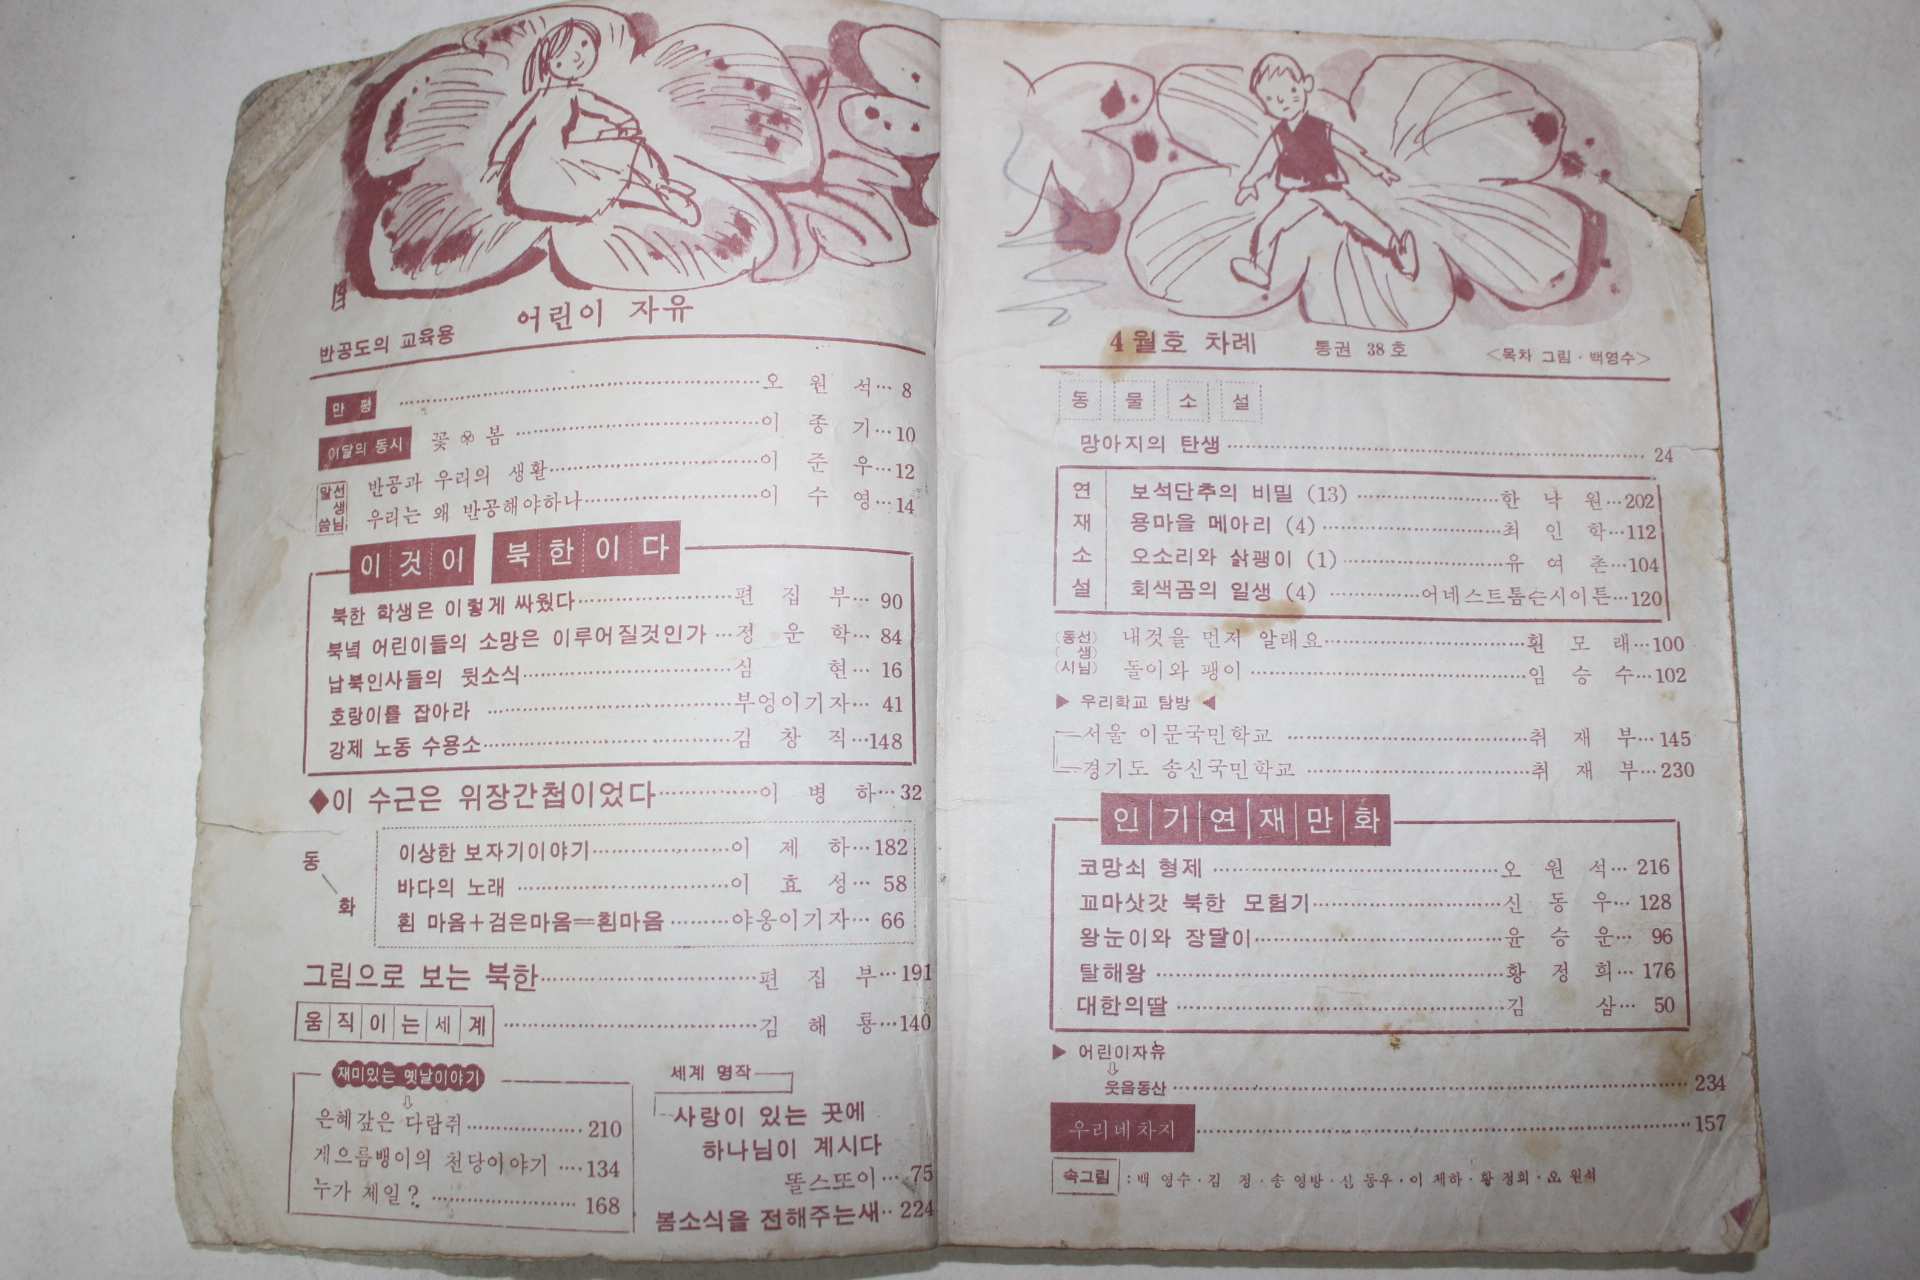 반공도의 교육용 어린이 자유
만평 ……오 원 석… 8
이달의 동시 꽃 봄 ……이 종 기…10
말선생씀님
반공과 우리의 생활……이 준 우…12
우리는 왜 반공해야하나……이 수 영…14
이것이 북한이다
북한 학생은 이렇게 싸웠다……편 집 부… 90
북녘 어린이들의 소망은 이루어질것인가…정 운 학… 84
납북인사들의 뒷소식……심 현… 16
호랑이를 잡아라 ……부엉이기자… 41
강제 노동 수용소……김 창 직…148
◆이 수근은 위장간첩이었다……이 병 하…32
동화
이상한 보자기이야기……이 제 하…182
바다의 노래 ……이 효 성… 58
흰 마음+검은마음=흰마음 ……야옹이기자… 66
그림으로 보는 북한……편 집 부…191
움직이는세계 ……김 해 룡…140
재미있는 옛날이야기
⇩
은혜갚은 다람쥐……210
게으름뱅이의 천당이야기 ……134
누가 제일? ……168
세계 명작
사랑이 있는 곳에
하나님이 계시다
똘스또이… 75
봄소식을 전해주는새…224
4월호 차례 통권 38호 <목차 그림·백영수>
동물소설
망아지의 탄생…… 24
연재소설
보석단추의 비밀 (13) ……한 낙 원…202
용마을 메아리 (4)……최 인 학…112
오소리와 삵괭이 (1)……유 여 촌…104
회색곰의 일생 (4) ……어네스트톰슨시이튼…120
(동선생시님)
내것을 먼저 알래요……흰 모 래…100
돌이와 팽이 ……임 승 수…102
▶ 우리학교 탐방 ◀
서울 이문국민학교 ……취 재 부…145
경기도 송신국민학교 ……취 재 부…230
인기연재만화
코망쇠 형제 ……오 원 석…216
꼬마삿갓 북한 모험기……신 동 우…128
왕눈이와 장달이……윤 승 운… 96
탈해왕 ……황 정 희…176
대한의딸 ……김 삼… 50
▶ 어린이자유
⇩
웃음동산……234
우리네차지……157
속그림 : 백 영수·김 정·송 영방·신 동우·이 제하·황 정희·오 원석